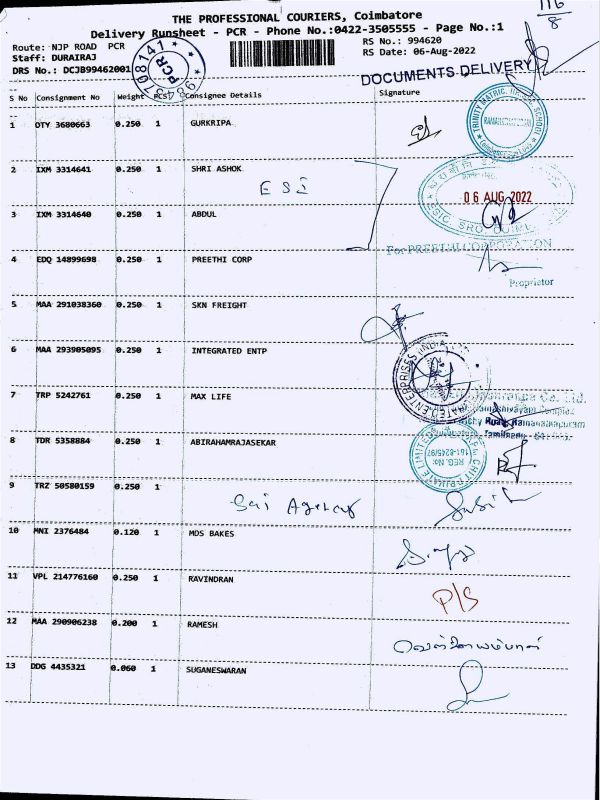 116
8
THE PROFESSIONAL COURIERS, Coimbatore
Delivery Runsheet - PCR - Phone No.:0422-3505555 - Page No.:1
Route: NJP ROAD PCR
RS No.: 994620
Staff: DURAIRAJ
RS Date: 06-Aug-2022
DRS No.: DCJB99462001
PCR
DOCUMENTS DELIVERY
S No Consignment No Weight PCS Consignee Details Signature
1 OTY 3680663 0.250 1 GURKRIPA
TRINITY MATRIC. SCHOOL
2 IXM 3314641 0.250 1 SHRI ASHOK
ESI
06 AUG 2022
ESIC SRO
3 IXM 3314640 0.250 1 ABDUL
For PREETHI CORPORATION
4 EDQ 14899698 0.250 1 PREETHI CORP
Proprietor
5 MAA 291038360 0.250 1 SKN FREIGHT
6 MAA 293905095 0.250 1 INTEGRATED ENTP
ENTERPRISES INDIA
7 TRP 5242761 0.250 1 MAX LIFE
Insurance Co. Ltd.
Complex
Road, Ramanathapuram
Tamilnadu
8 TDR 5358884 0.250 1 ABIRAHAMRAJASEKAR
CHIT PRIVATE LIMITED
REG. No:
9 TRZ 50580159 0.250 1
Sai Agency
10 MNI 2376484 0.120 1 MDS BAKES
11 VPL 214776160 0.250 1 RAVINDRAN
P/S
12 MAA 290906238 0.200 1 RAMESH
13 DDG 4435321 0.060 1 SUGANESWARAN